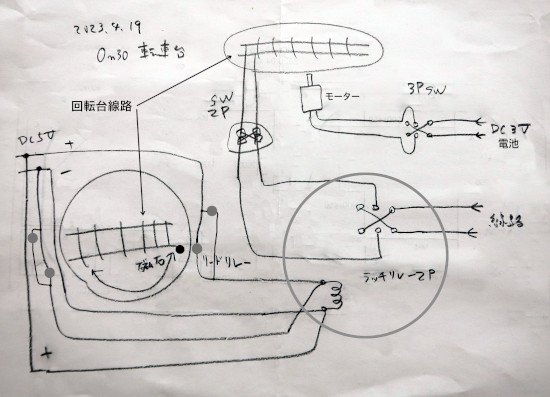 2023.4.19
On30 転車台
回転台線路
SW
2P
モーター
3P SW
DC 3V
電池
DC5V
+
-
線路
磁石
リードリレー
ラッチリレー2P
+